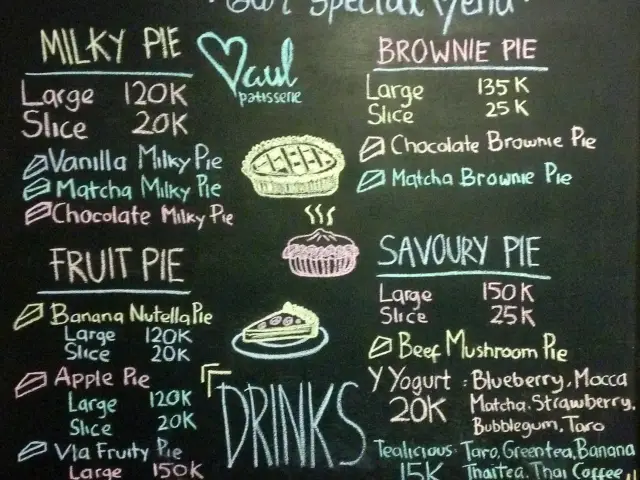 Our Special Menu
MILKY PIE
Large 120K
Slice 20K
Vanilla Milky Pie
Matcha Milky Pie
Chocolate Milky Pie
FRUIT PIE
Banana Nutella Pie
Large 120K
Slice 20K
Apple Pie
Large 120K
Slice 20K
Vla Fruity Pie
Large 150K
patisserie
DRINKS
BROWNIE PIE
Large 135K
Slice 25K
Chocolate Brownie Pie
Matcha Brownie Pie
SAVOURY PIE
Large 150K
Slice 25K
Beef Mushroom Pie
Y Yogurt : Blueberry, Mocca
20K Matcha, Strawberry,
Bubblegum, Taro
Tealicious: Taro, Greentea, Banana
15K Thaitea, Thai Coffee